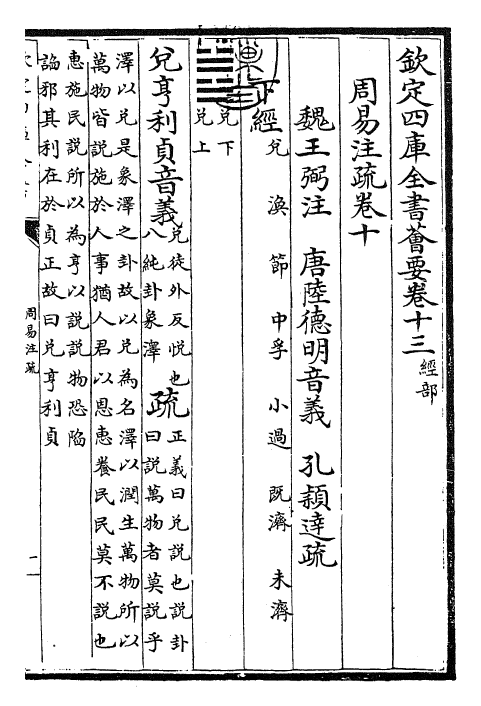 欽定四庫全書薈要卷十三經部
周易注疏卷十
魏王弼注 唐陸德明音義 孔穎達疏
下經兌 渙 節 中孚 小過 既濟 未濟
兌下
兌上
兌亨利貞音義兌徒外反悅也
八純卦象澤疏正義曰兌說也說卦
曰說萬物者莫說乎
澤以兌是象澤之卦故以兌為名澤以潤生萬物所以
萬物皆說施於人事猶人君以恩惠養民民莫不說也
惠施民說所以為亨以說說物恐陷
諂邪其利在於貞正故曰兌亨利貞
周易注疏
一